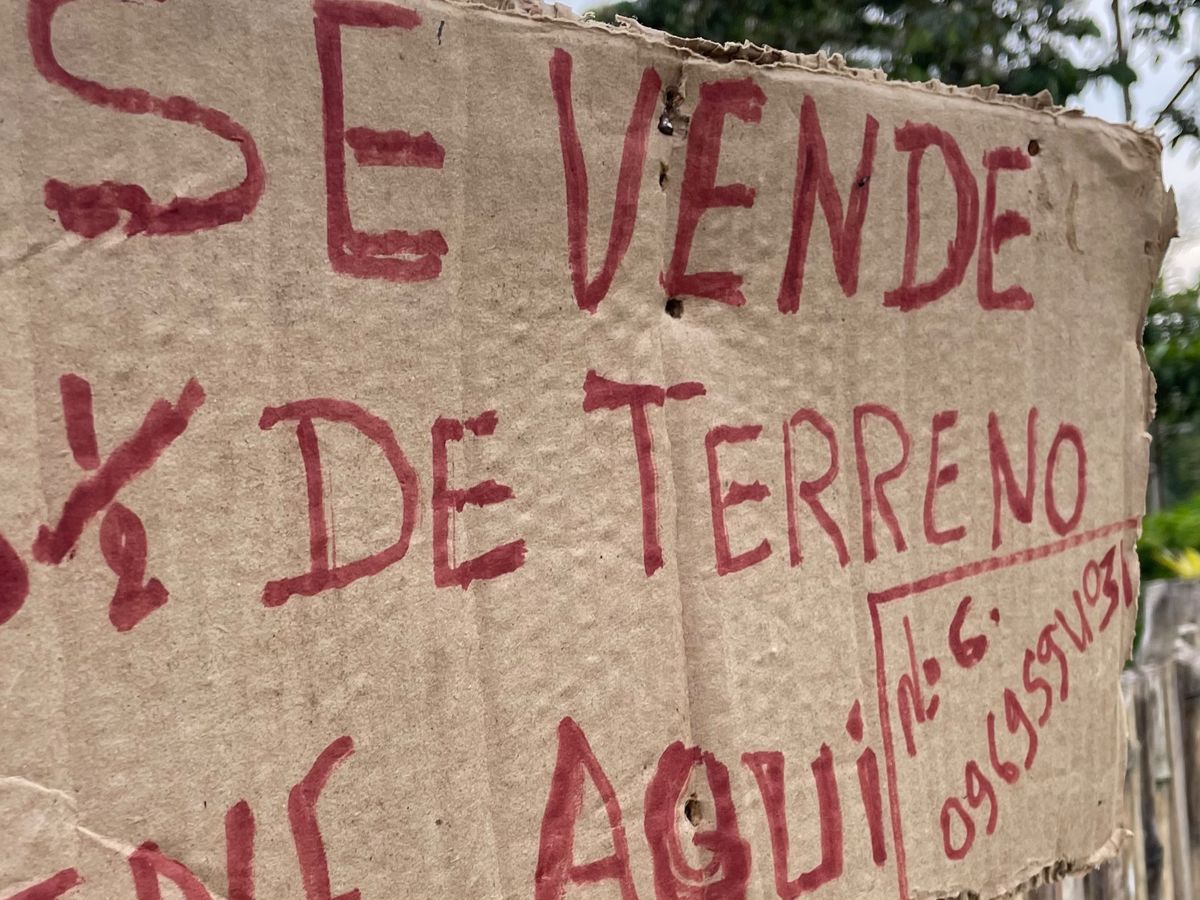 SE VENDE
½ DE TERRENO
AQUi
N: 6.
09695594031